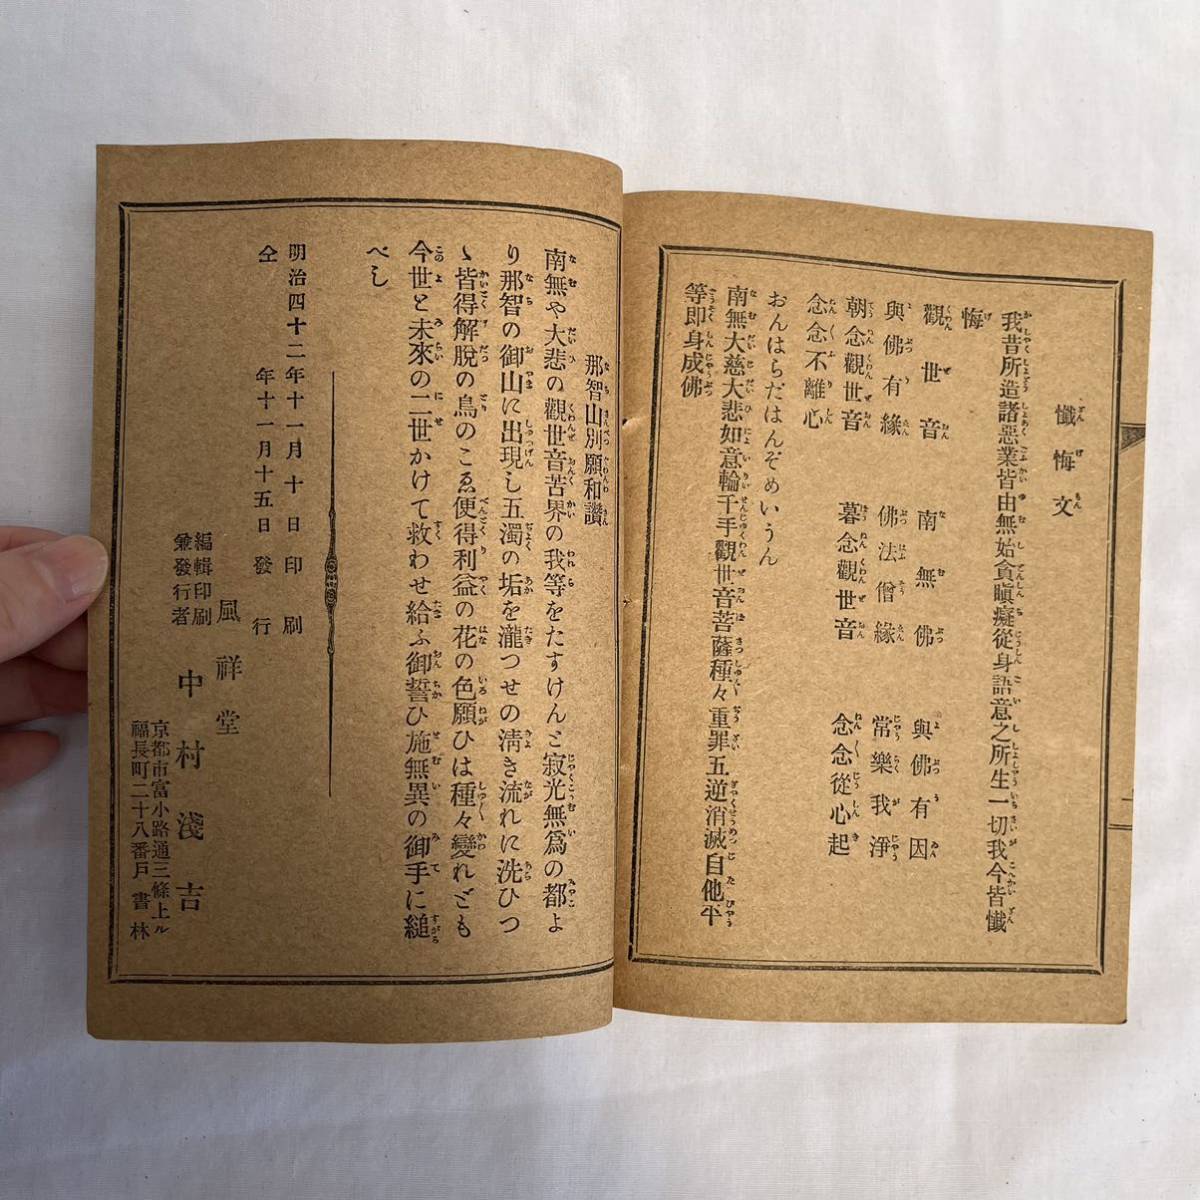 懺悔文
我昔所造諸惡業皆由無始貪瞋癡從身語意之所生一切我今皆懺
悔
觀世音 南無佛 與佛有因
與佛有緣 佛法僧緣 常樂我淨
朝念觀世音 暮念觀世音 念念從心起
念念不離心
おんはらだはんぞめいうん
南無大慈大悲如意輪千手觀世音菩薩種々重罪五逆消滅自他平
等即身成佛
那智山別願和讚
南無や大悲の觀世音苦界の我等をたすけんと寂光無爲の都よ
り那智の御山に出現し五濁の垢を瀧つせの淸き流れに洗ひつ
ゝ皆得解脫の鳥のこゑ便得利益の花の色願ひは種々變れども
今世と未來の二世かけて救わせ給ふ御誓ひ施無異の御手に縋
べし
明治四十二年十一月十日印刷
仝 年十一月十五日發行
風祥堂
編輯印刷
兼發行者 中村淺吉
京都市富小路通三條上ル
福長町二十八番戶書林